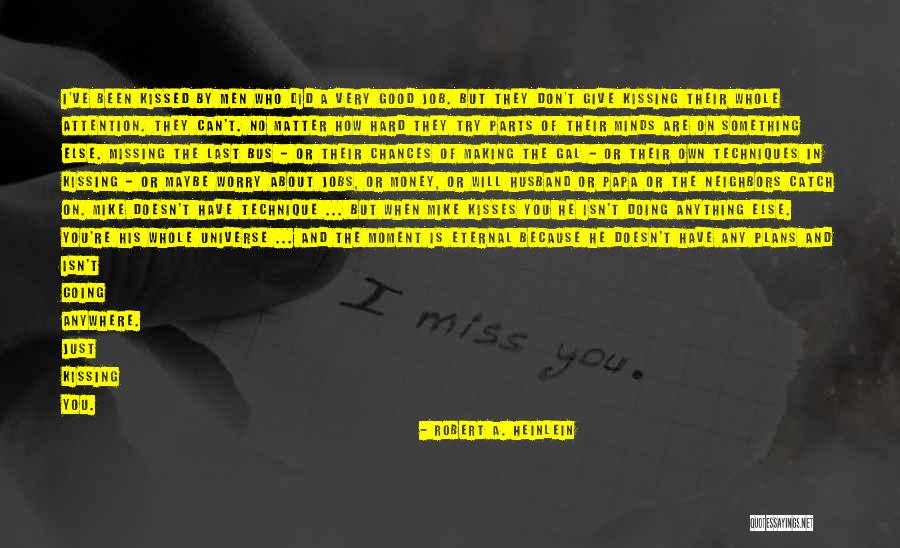 I'VE BEEN KISSED BY MEN WHO DID A VERY GOOD JOB. BUT THEY DON'T GIVE KISSING THEIR WHOLE
ATTENTION. THEY CAN'T. NO MATTER HOW HARD THEY TRY PARTS OF THEIR MINDS ARE ON SOMETHING
ELSE. MISSING THE LAST BUS - OR THEIR CHANCES OF MAKING THE GAL - OR THEIR OWN TECHNIQUES IN
KISSING - OR MAYBE WORRY ABOUT JOBS, OR MONEY, OR WILL HUSBAND OR PAPA OR THE NEIGHBORS CATCH
ON. MIKE DOESN'T HAVE TECHNIQUE ... BUT WHEN MIKE KISSES YOU HE ISN'T DOING ANYTHING ELSE.
YOU'RE HIS WHOLE UNIVERSE ... AND THE MOMENT IS ETERNAL BECAUSE HE DOESN'T HAVE ANY PLANS AND
ISN'T
GOING
ANYWHERE.
JUST
KISSING
YOU.
I miss you.
- ROBERT A. HEINLEIN
QUOTESSAYINGS.NET